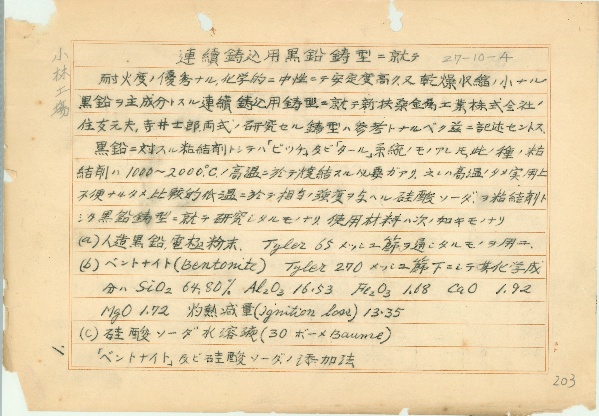 連續鋳込用黒鉛鋳型ニ就テ 27-10-4
小林工場
耐火度ノ優秀ナル、化学的ニ中性ニテ安定度高ク、又乾燥収縮ノ小ナル
黒鉛ヲ主成分トスル連續鋳込用鋳型ニ就テ新扶桑金属工業株式会社ノ
住友元夫、寺井士郎両氏ノ研究セル鋳型ハ参考トナルベク茲ニ記述セントス
黒鉛ニ対スル粘結剤トシテハ「ピッチ」及ビ「タール」系統ノモノアレ共、此ノ種ノ粘
結剤ハ1000〜2000℃ノ高温ニ於テ焼結スル必要ガアリ、之レハ高温ノタメ実用上
不便ナルタメ比較的低温ニ於テ相当ノ強度ヲ与ヘル硅酸ソーダヲ粘結剤ト
シタ黒鉛鋳型ニ就テ研究シタルモノナリ 使用材料ハ次ノ如キモノナリ
(a)人造黒鉛電極粉末. Tyler 65メッシュ篩ヲ通シタルモノヲ用フ.
(b)ベントナイト(Bentonite) Tyler 270メッシュ篩下ニシテ其化学成
分ハ SiO2 64.80% Al2O3 16.53 Fe2O3 1.68 CaO 1.92
MgO 1.72 灼熱減量(ignition loss) 13.35
(C)硅酸ソーダ水溶液(30ボーメBaume)
「ベントナイト」及ビ硅酸ソーダノ添加法
203